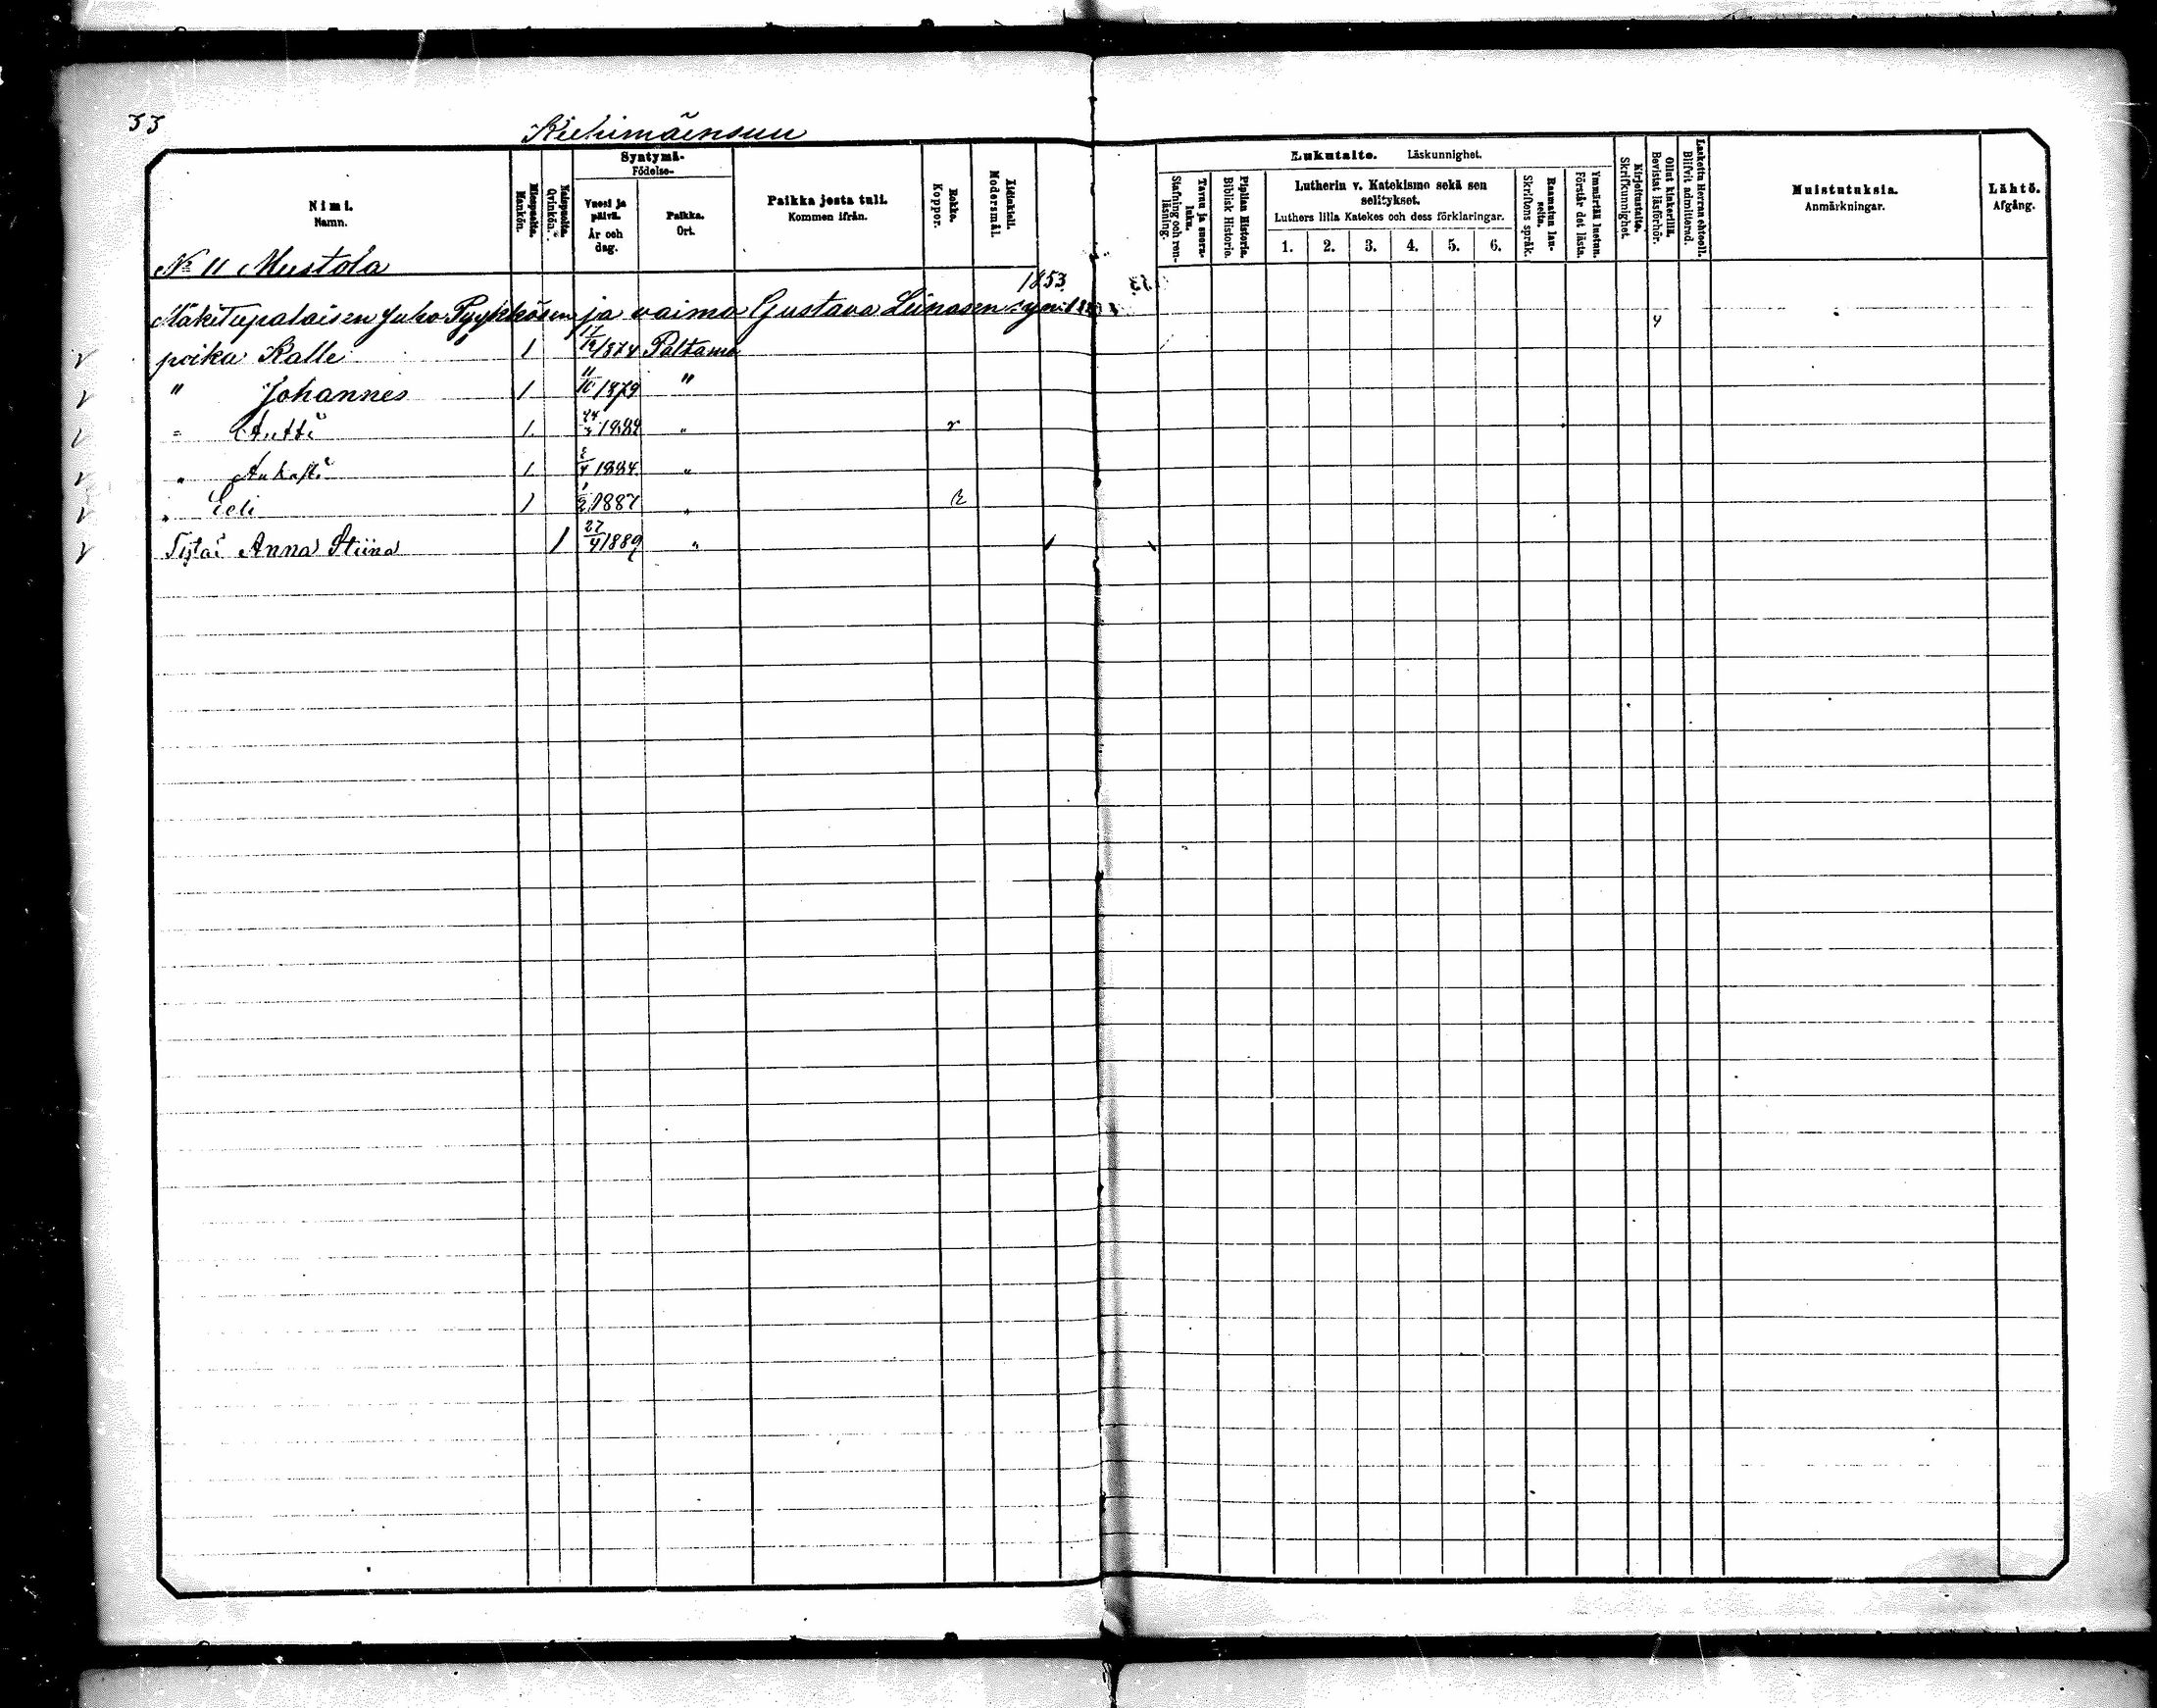 33
Kiehimäensuu
Nimi.
Namn.
Miespuolia.
Mankön.
Naispuolia.
Qvinkön.
Syntymä-
Födelse-
Vuosi ja päivä.
År och dag.
Paikka.
Ort.
Paikka josta tuli.
Kommen ifrån.
Rokko.
Koppor.
Äidinkieli.
Modersmål.
Lukutaito. Läskunnighet.
Tavuu ja suora-luku.
Stafning och ren-läsning.
Piplian Historia.
Biblisk Historia.
Lutherin v. Katekismo sekä sen selitykset.
Luthers lilla Katekes och dess förklaringar.
1. 2. 3. 4. 5. 6.
Raamatun lau-seita.
Skriftens språk.
Ymmärtää luetun.
Förstår det lästa.
Kirjoitustaito.
Skrifkunnighet.
Ollut kinkerillä.
Bevistat läsförhör.
Laskettu Herran ehtooll.
Blifvit admitterad.
Muistutuksia.
Anmärkningar.
Lähtö.
Afgång.
No 11 Mustola
1853
Mäkitupalaisen Juho Pyykkösen ja vaimo Gustava Leinosen synt.
poika Kalle 1 17/12 1874 Paltamo
" Johannes 1 11/10 1879 "
" Antti 1 24 188 " r
" 1 4 1884 "
" Eeli 1 1/2 1887 " R
Tytär Anna Stiina 1 27/4 1889 "